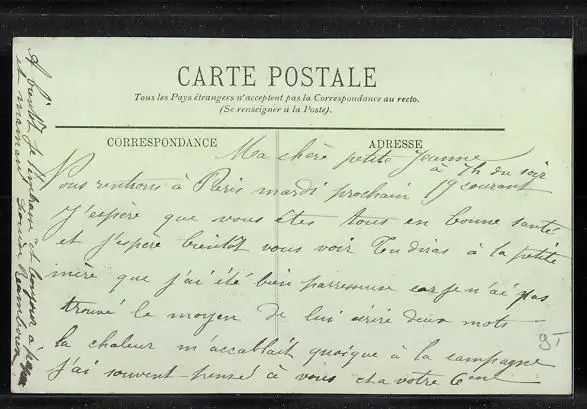 CARTE POSTALE
Tous les Pays étrangers n'acceptent pas la Correspondance au recto.
(Se renseigner à la Poste).
CORRESPONDANCE
ADRESSE
Ma chère petite Jeanne
à 7h du soir
Nous rentrons à Paris mardi prochain 19 courant
J'espère que vous êtes tous en bonne santé
et j'espère bientôt vous voir Tu diras à la petite
mère que j'ai été bien parresseuse car je n'ai pas
trouvé le moyen de lui écrire deux mots
la chaleur m'accablait quoique à la campagne
j'ai souvent pensé à vous
A bientôt Je t'embrasse
et maman